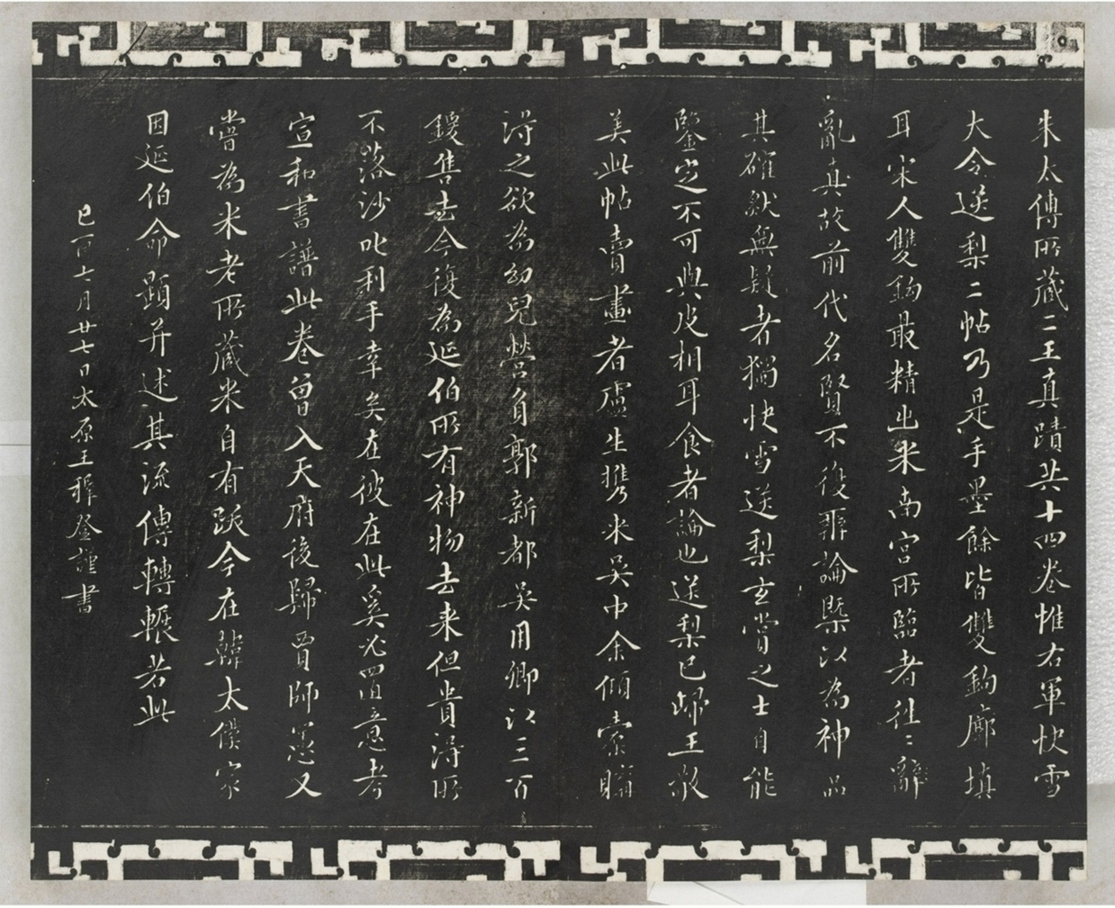 朱太傅所藏二王真蹟共十四卷惟右軍快雪
大令送梨二帖乃是手墨餘皆雙鉤廓填
耳宋人雙鉤最精出米南宮所臨者往〻
亂真故前代名賢不復辨論槩以為神品
其確然無疑者獨快雪送梨玄賞之士自能
鑒定不可與皮相耳食者論也送梨已歸王敬
美此帖賣畫者盧生攜來吳中余傾橐購
得之欲為幼兒營負郭新都吳用卿以三百
鍰售去今復為延伯所有神物去來但貴得所
不落沙叱利手幸矣在彼在此奚必置意考
宣和書譜此卷曾入天府後歸賈師憲又
嘗為米老所藏米自有跋今在韓太僕家
因延伯命題并述其流傳轉輾若此
己酉七月廿七日太原王穉登謹書